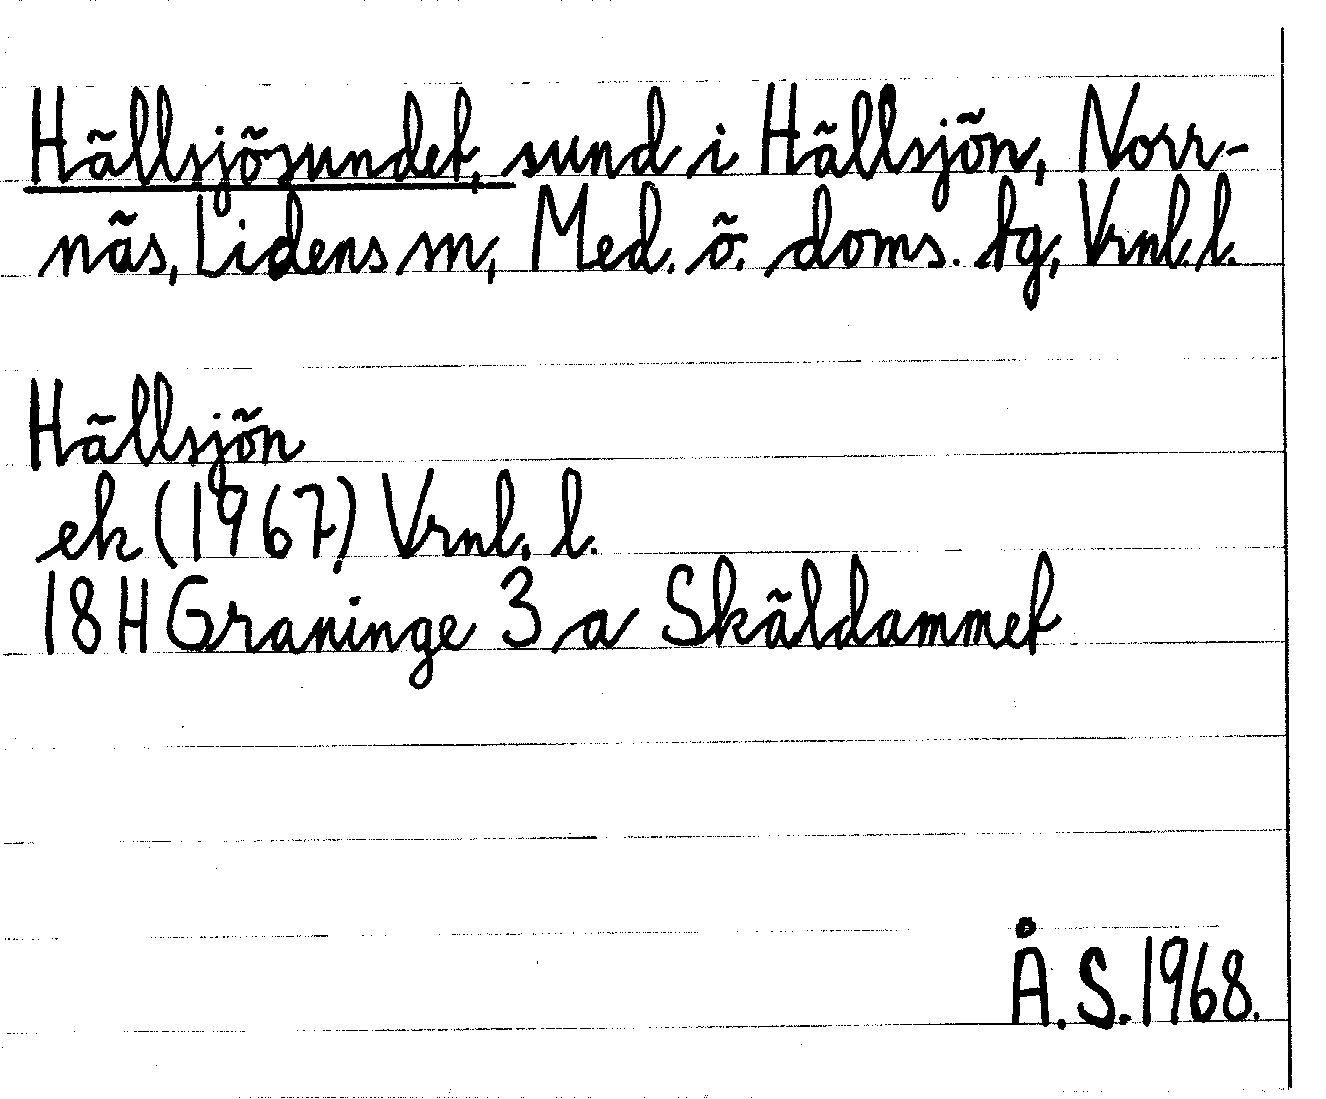 Hällsjösundet, sund i Hällsjön, Norr-
näs, Lidens sn, Med. ö. doms. tg, Vrnl. l.
Hällsjön
ek (1967) Vrnl. l.
18H Graninge 3 a Skäldammet
Å. S. 1968.